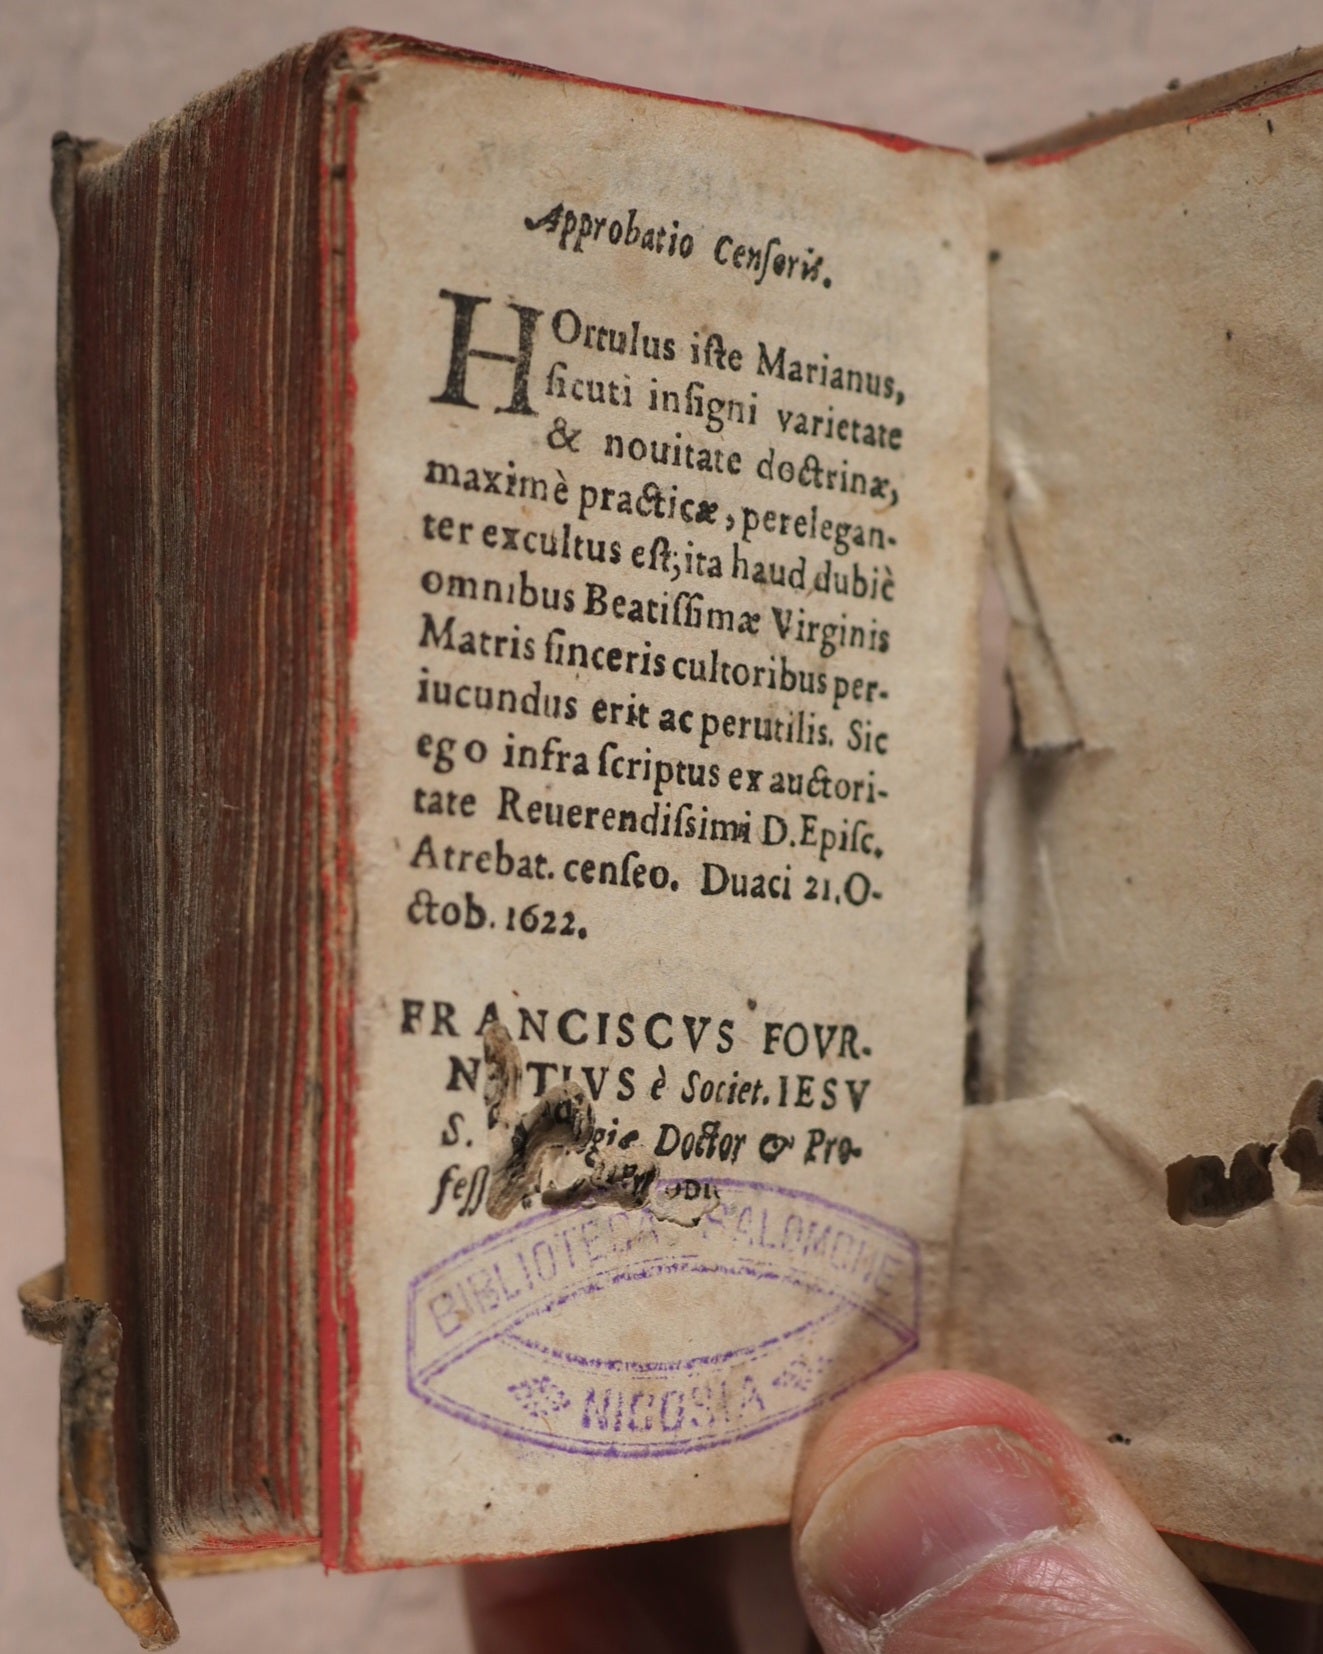 Approbatio Cenſoris.
HOrtulus iſte Marianus,
ſicuti inſigni varietate
& nouitate doctrinæ,
maximè practicæ, perelegan-
ter excultus eſt; ita haud dubiè
omnibus Beatiſſimæ Virginis
Matris ſinceris cultoribus per-
iucundus erit ac perutilis. Sic
ego infra ſcriptus ex auctori-
tate Reuerendiſsimi D. Epiſc.
Atrebat. cenſeo. Duaci 21. O-
ctob. 1622.
FRANCISCVS FOVR-
TIVS è Societ. IESV
S. Doctor & Pro-
BIBLIOTECA SALOMONE
NICOSIA